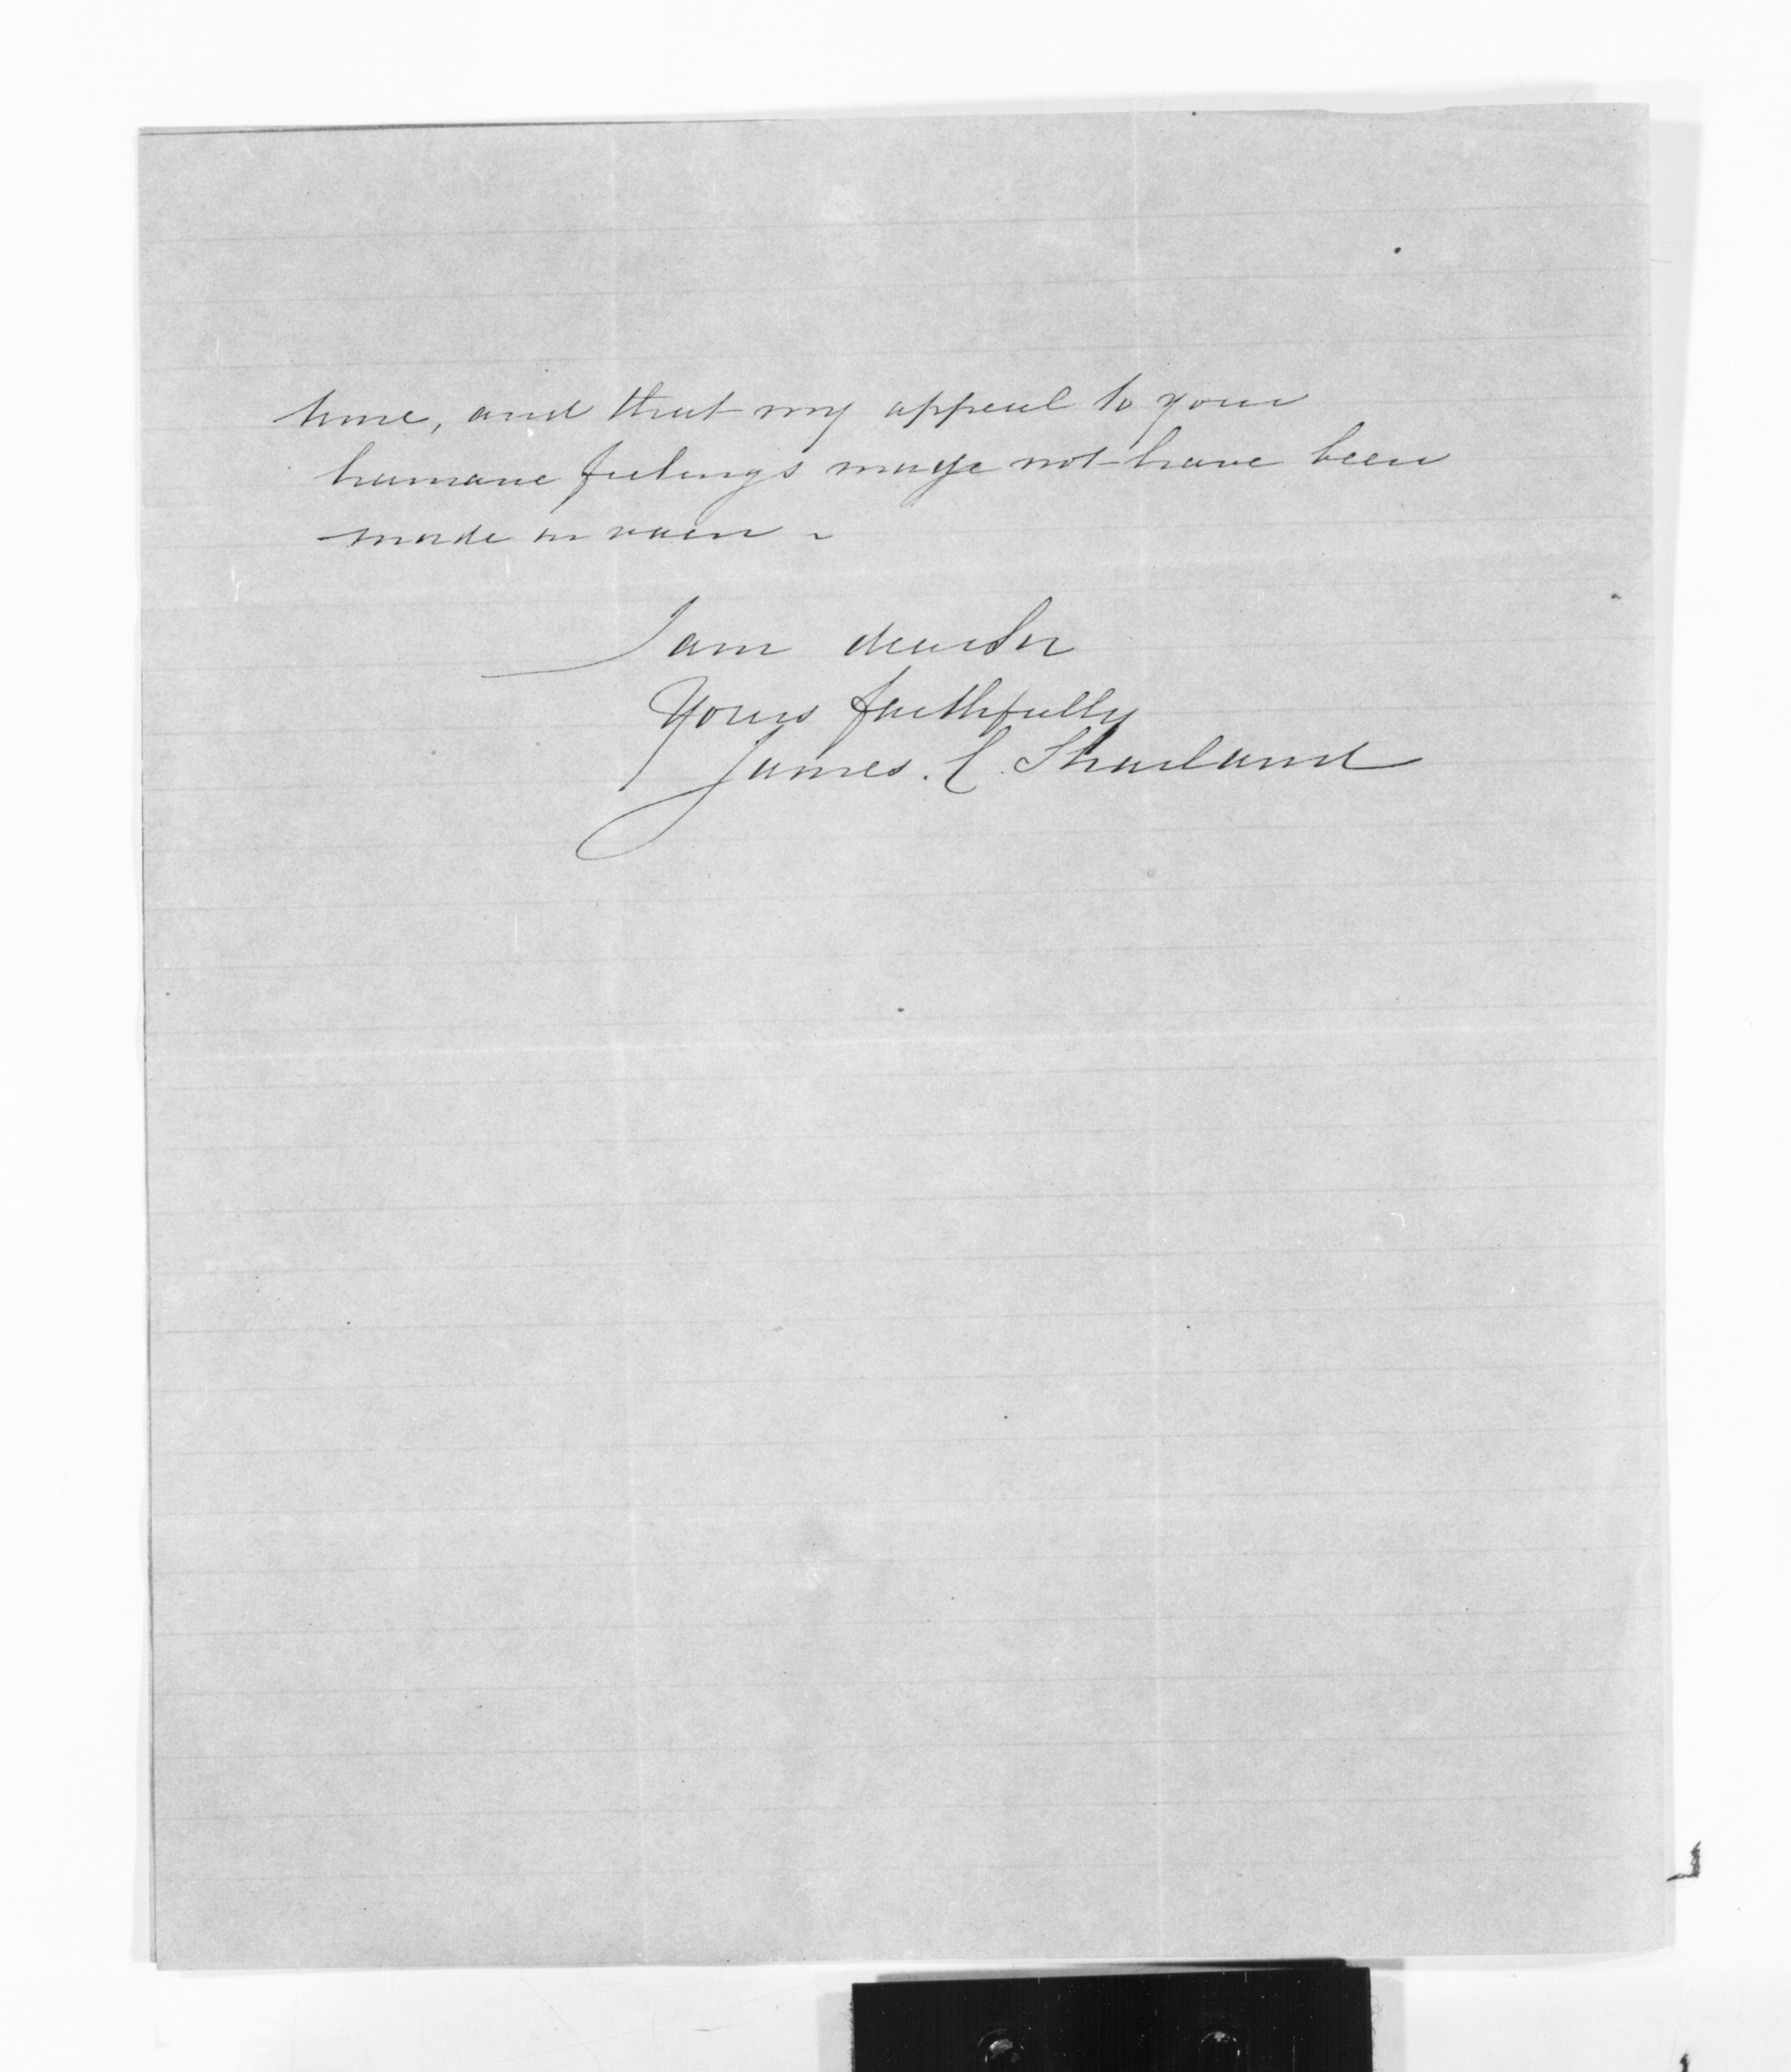 time, and that my appeal to your
humane feelings maye not have been
made in vain ~
I am dear Sir
Yours faithfully
James. C. Sharland